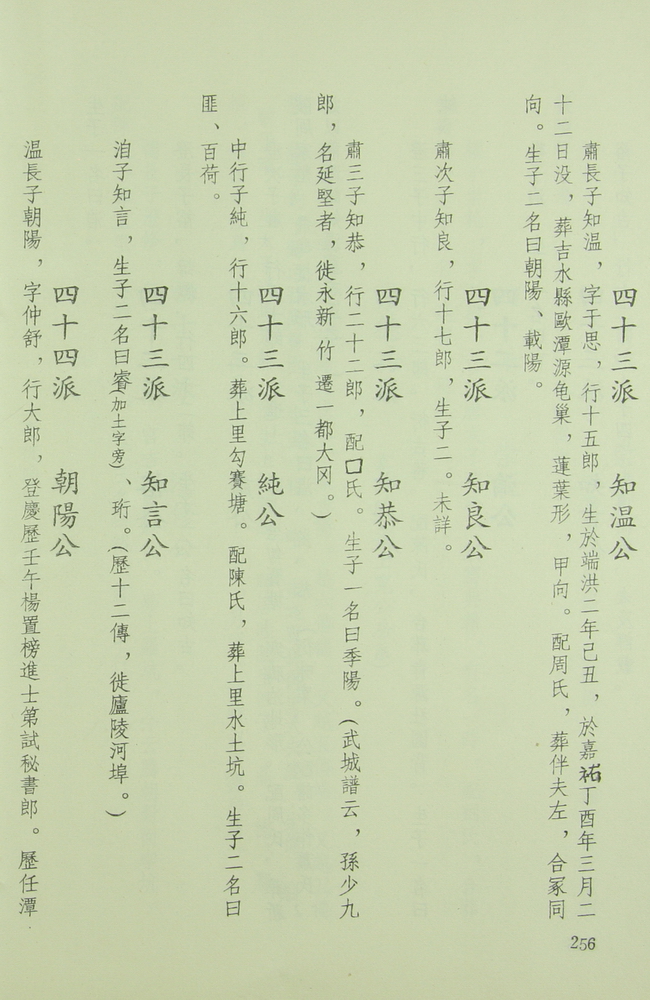 四十三派　知温公
肅長子知温，字于思，行十五郎，生於端洪二年己丑，於嘉祐丁酉年三月二
十二日没，葬吉水縣歐潭源龟巢，蓮葉形，甲向。配周氏，葬伴夫左，合冢同
向。生子二名曰朝陽、載陽。
四十三派　知良公
肅次子知良，行十七郎，生子二。未詳。
四十三派　知恭公
肅三子知恭，行二十二郎，配口氏。生子一名曰季陽。(武城譜云，孫少九
郎，名延堅者，徙永新竹遷一都大冈。)
四十三派　純公
中行子純，行十六郎。葬上里勾賽塘。配陳氏，葬上里水土坑。生子二名曰
匪、百荷。
四十三派　知言公
洎子知言，生子二名曰睿(加土字旁)、珩。(歷十二傳，徙廬陵河埠。)
四十四派　朝陽公
温長子朝陽，字仲舒，行大郎，登慶歷壬午楊置榜進士第試秘書郎。歷任潭
256